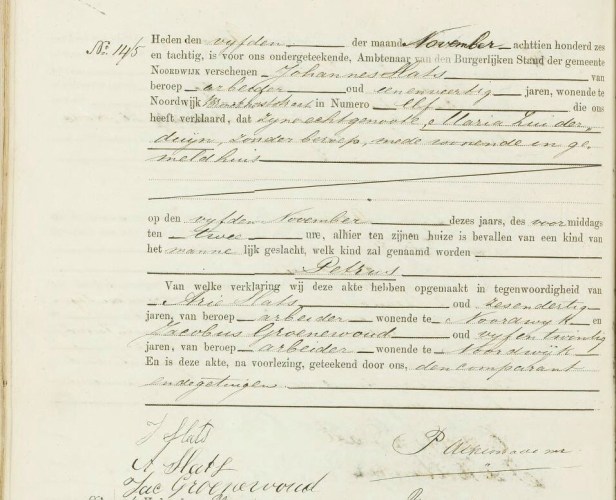 Nº 145 Heden den vyfden der maand November achttien honderd zes
en tachtig, is voor ons ondergeteekende, Ambtenaar van den Burgerlijken Stand der gemeente
NOORDWIJK verschenen Johannes Slats van
beroep arbeider oud een en veertig jaren, wonende te
Noordwijk in Numero Elf die ons
heeft verklaard, dat zyne echtgenoote, Maria Zuider
duyn, zonder beroep, mede wonende in ge
meld huis
op den vyfden November dezes jaars, des voor middags
ten twee ure, alhier ten zijnen huize is bevallen van een kind van
het manne lijk geslacht, welk kind zal genaamd worden
Petrus
Van welke verklaring wij deze akte hebben opgemaakt in tegenwoordigheid van
Arie Slats oud zesendertig
jaren, van beroep arbeider wonende te Noordwyk en
Jacobus Groenewoud oud vyf en twintig
jaren, van beroep arbeider wonende te Noordwyk
En is deze akte, na voorlezing, geteekend door ons, den comparant
en de getuigen
J Slats
P Alkemade
A Slats
Jac Groenewoud